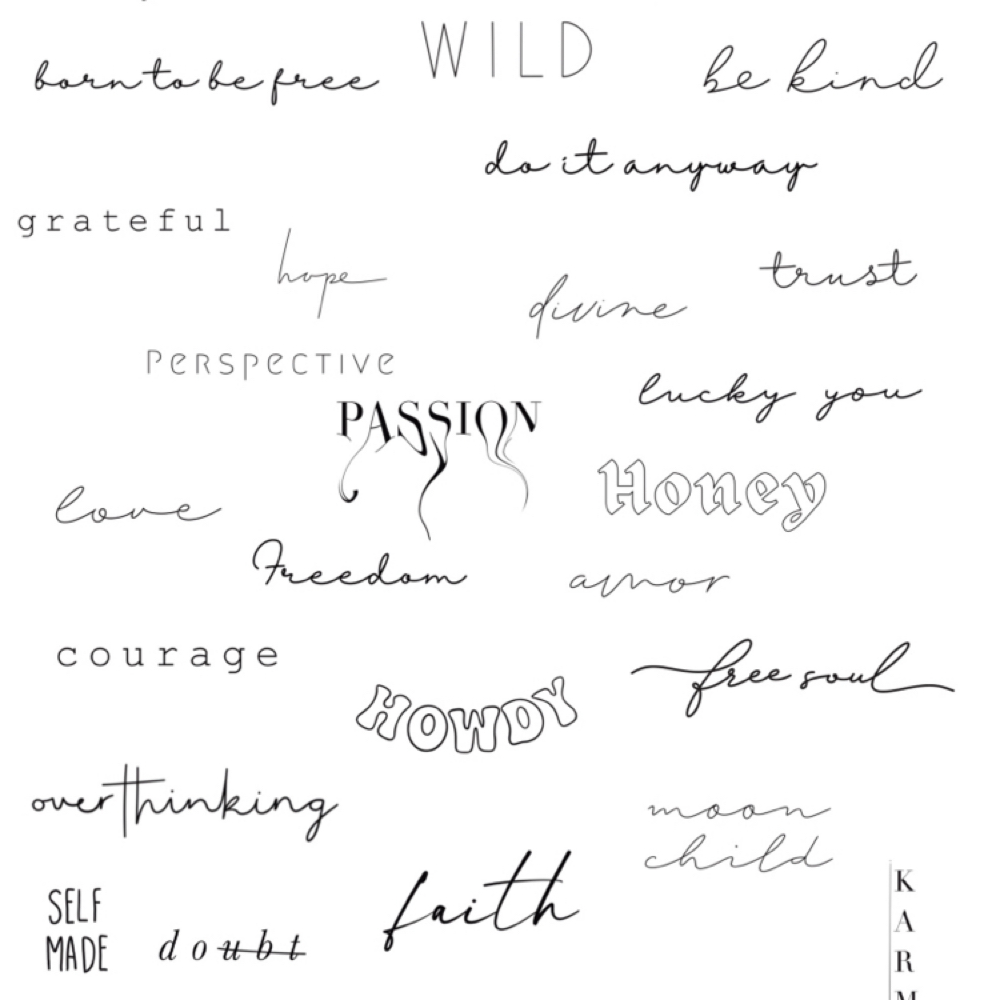 WILD
born to be free
be kind
do it anyway
grateful
hope
trust
divine
PERSPECTIVE
lucky you
PASSION
Honey
love
Freedom
amor
courage
free soul
HOWDY
overthinking
moon
child
SELF
MADE
doubt
faith
K
A
R
M